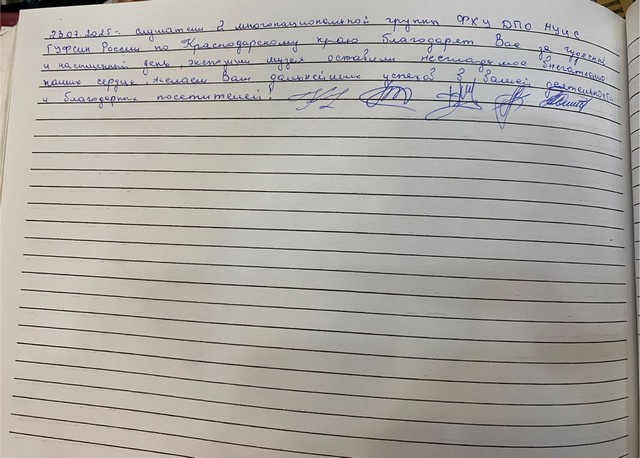 23.07.2025г. Слушатели 2 многонациональной группы ФКУ ДПО МУЦ
ГУФСИН России по Краснодарскому краю благодарят Вас за чудесный
и насыщенный день, экспонаты музея оставили неизгладимое впечатление
наших сердцах, желаем Вам дальнейших успехов в Вашей деятельности
и благодарных посетителей!